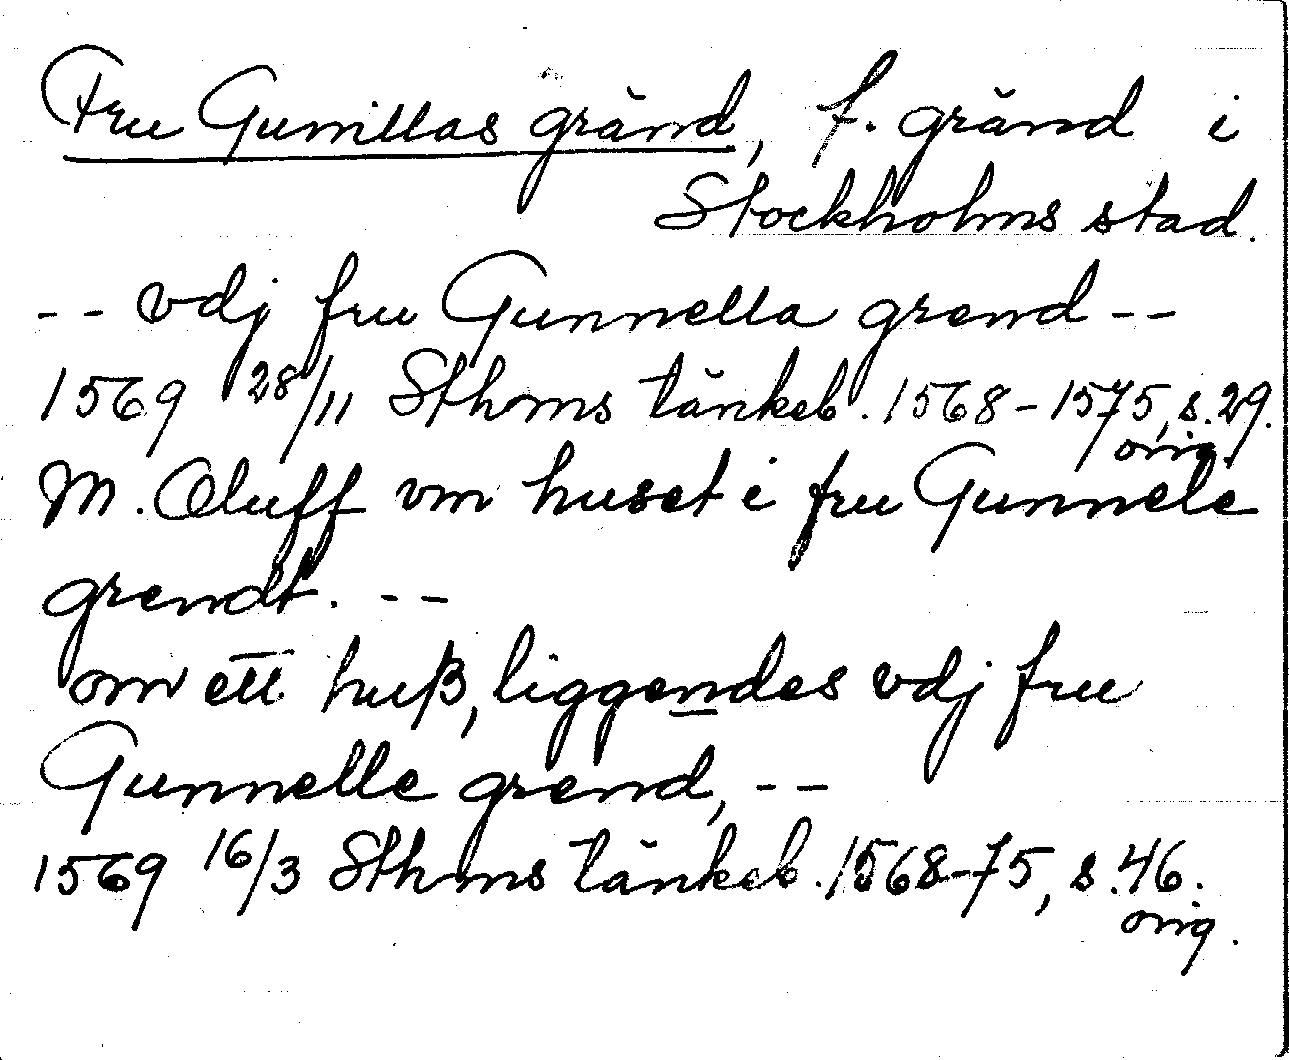 Fru Gunillas gränd, f. gränd i
Stockholms stad.
-- vdj fru Gunnella grend --
1569 28/11 Sthoms tänkeb. 1568-1575, s. 29.
orig.
M. Oluff vm huset i fru Gunnele
grendt. --
om ett huß, liggendes vdj fru
Gunnelle grend, --
1569 16/3 Sthms tänkeb. 1568-75, s. 46.
orig.